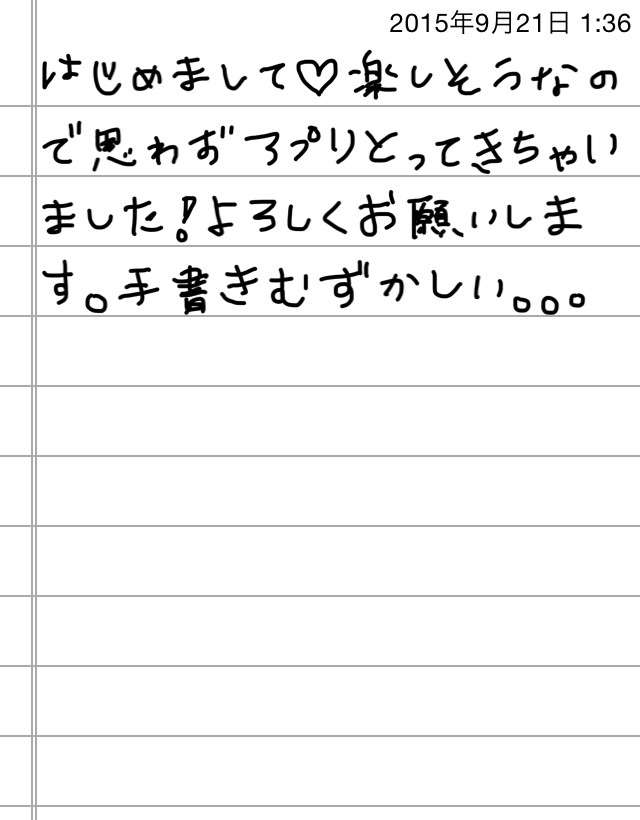 2015年9月21日 1:36
はじめまして♡楽しそうなの
で思わずアプリとってきちゃい
ました!よろしくお願いしま
す。手書きむずかしい。。。